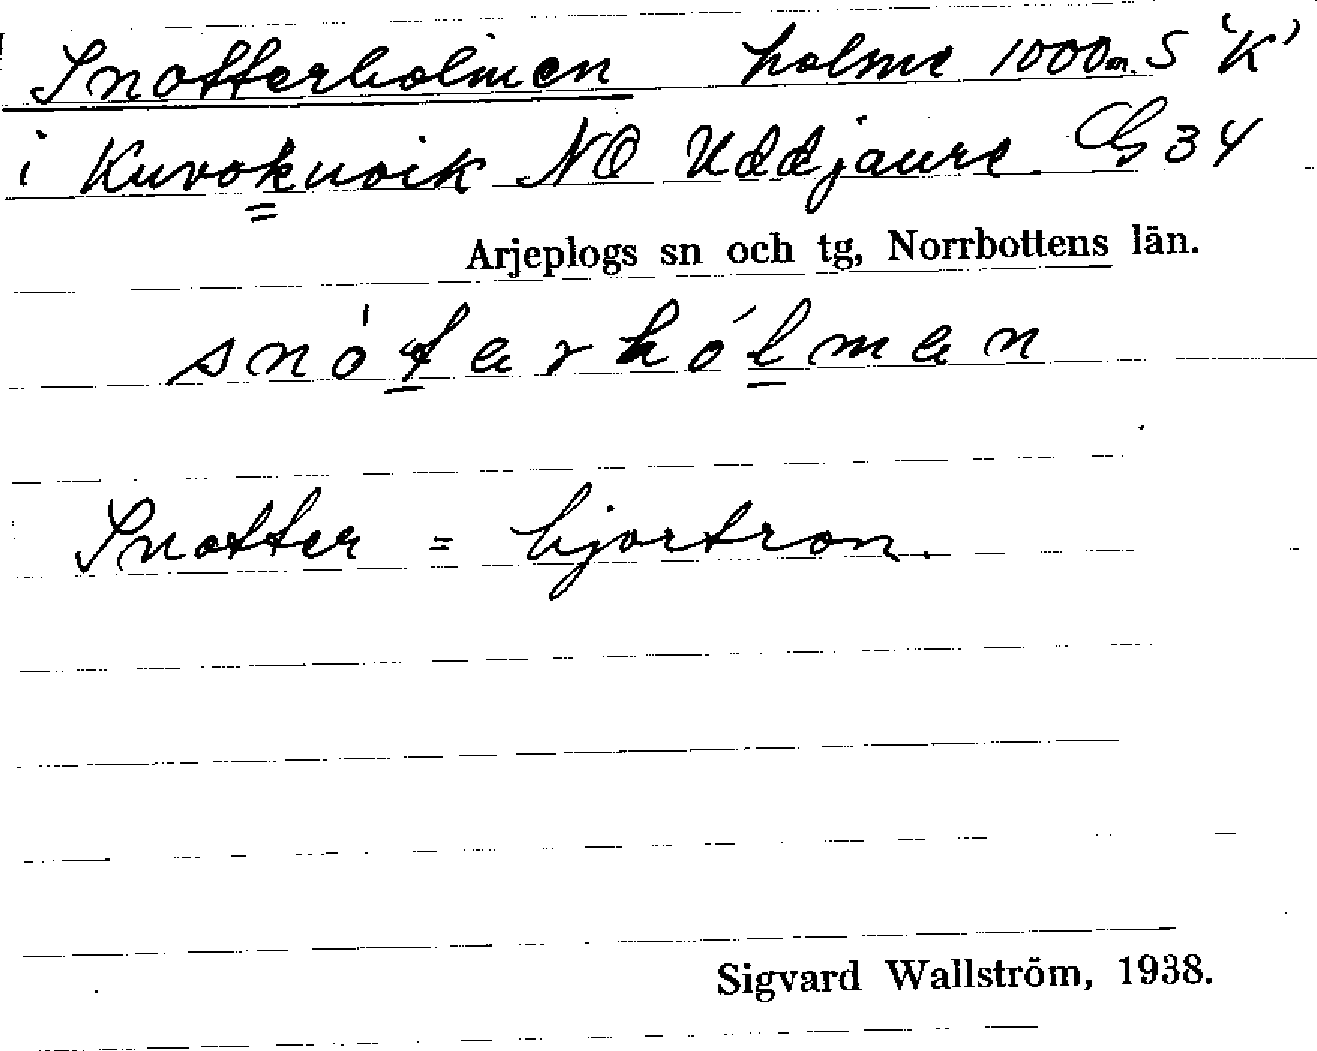 Snotterholmen holme 1000m. S 'K'
i Kuvokuoik NO Uddjaure. G 34
Arjeplogs sn och tg, Norrbottens län.
snóterhólmen
Snotter = hjortron.
Sigvard Wallström, 1938.